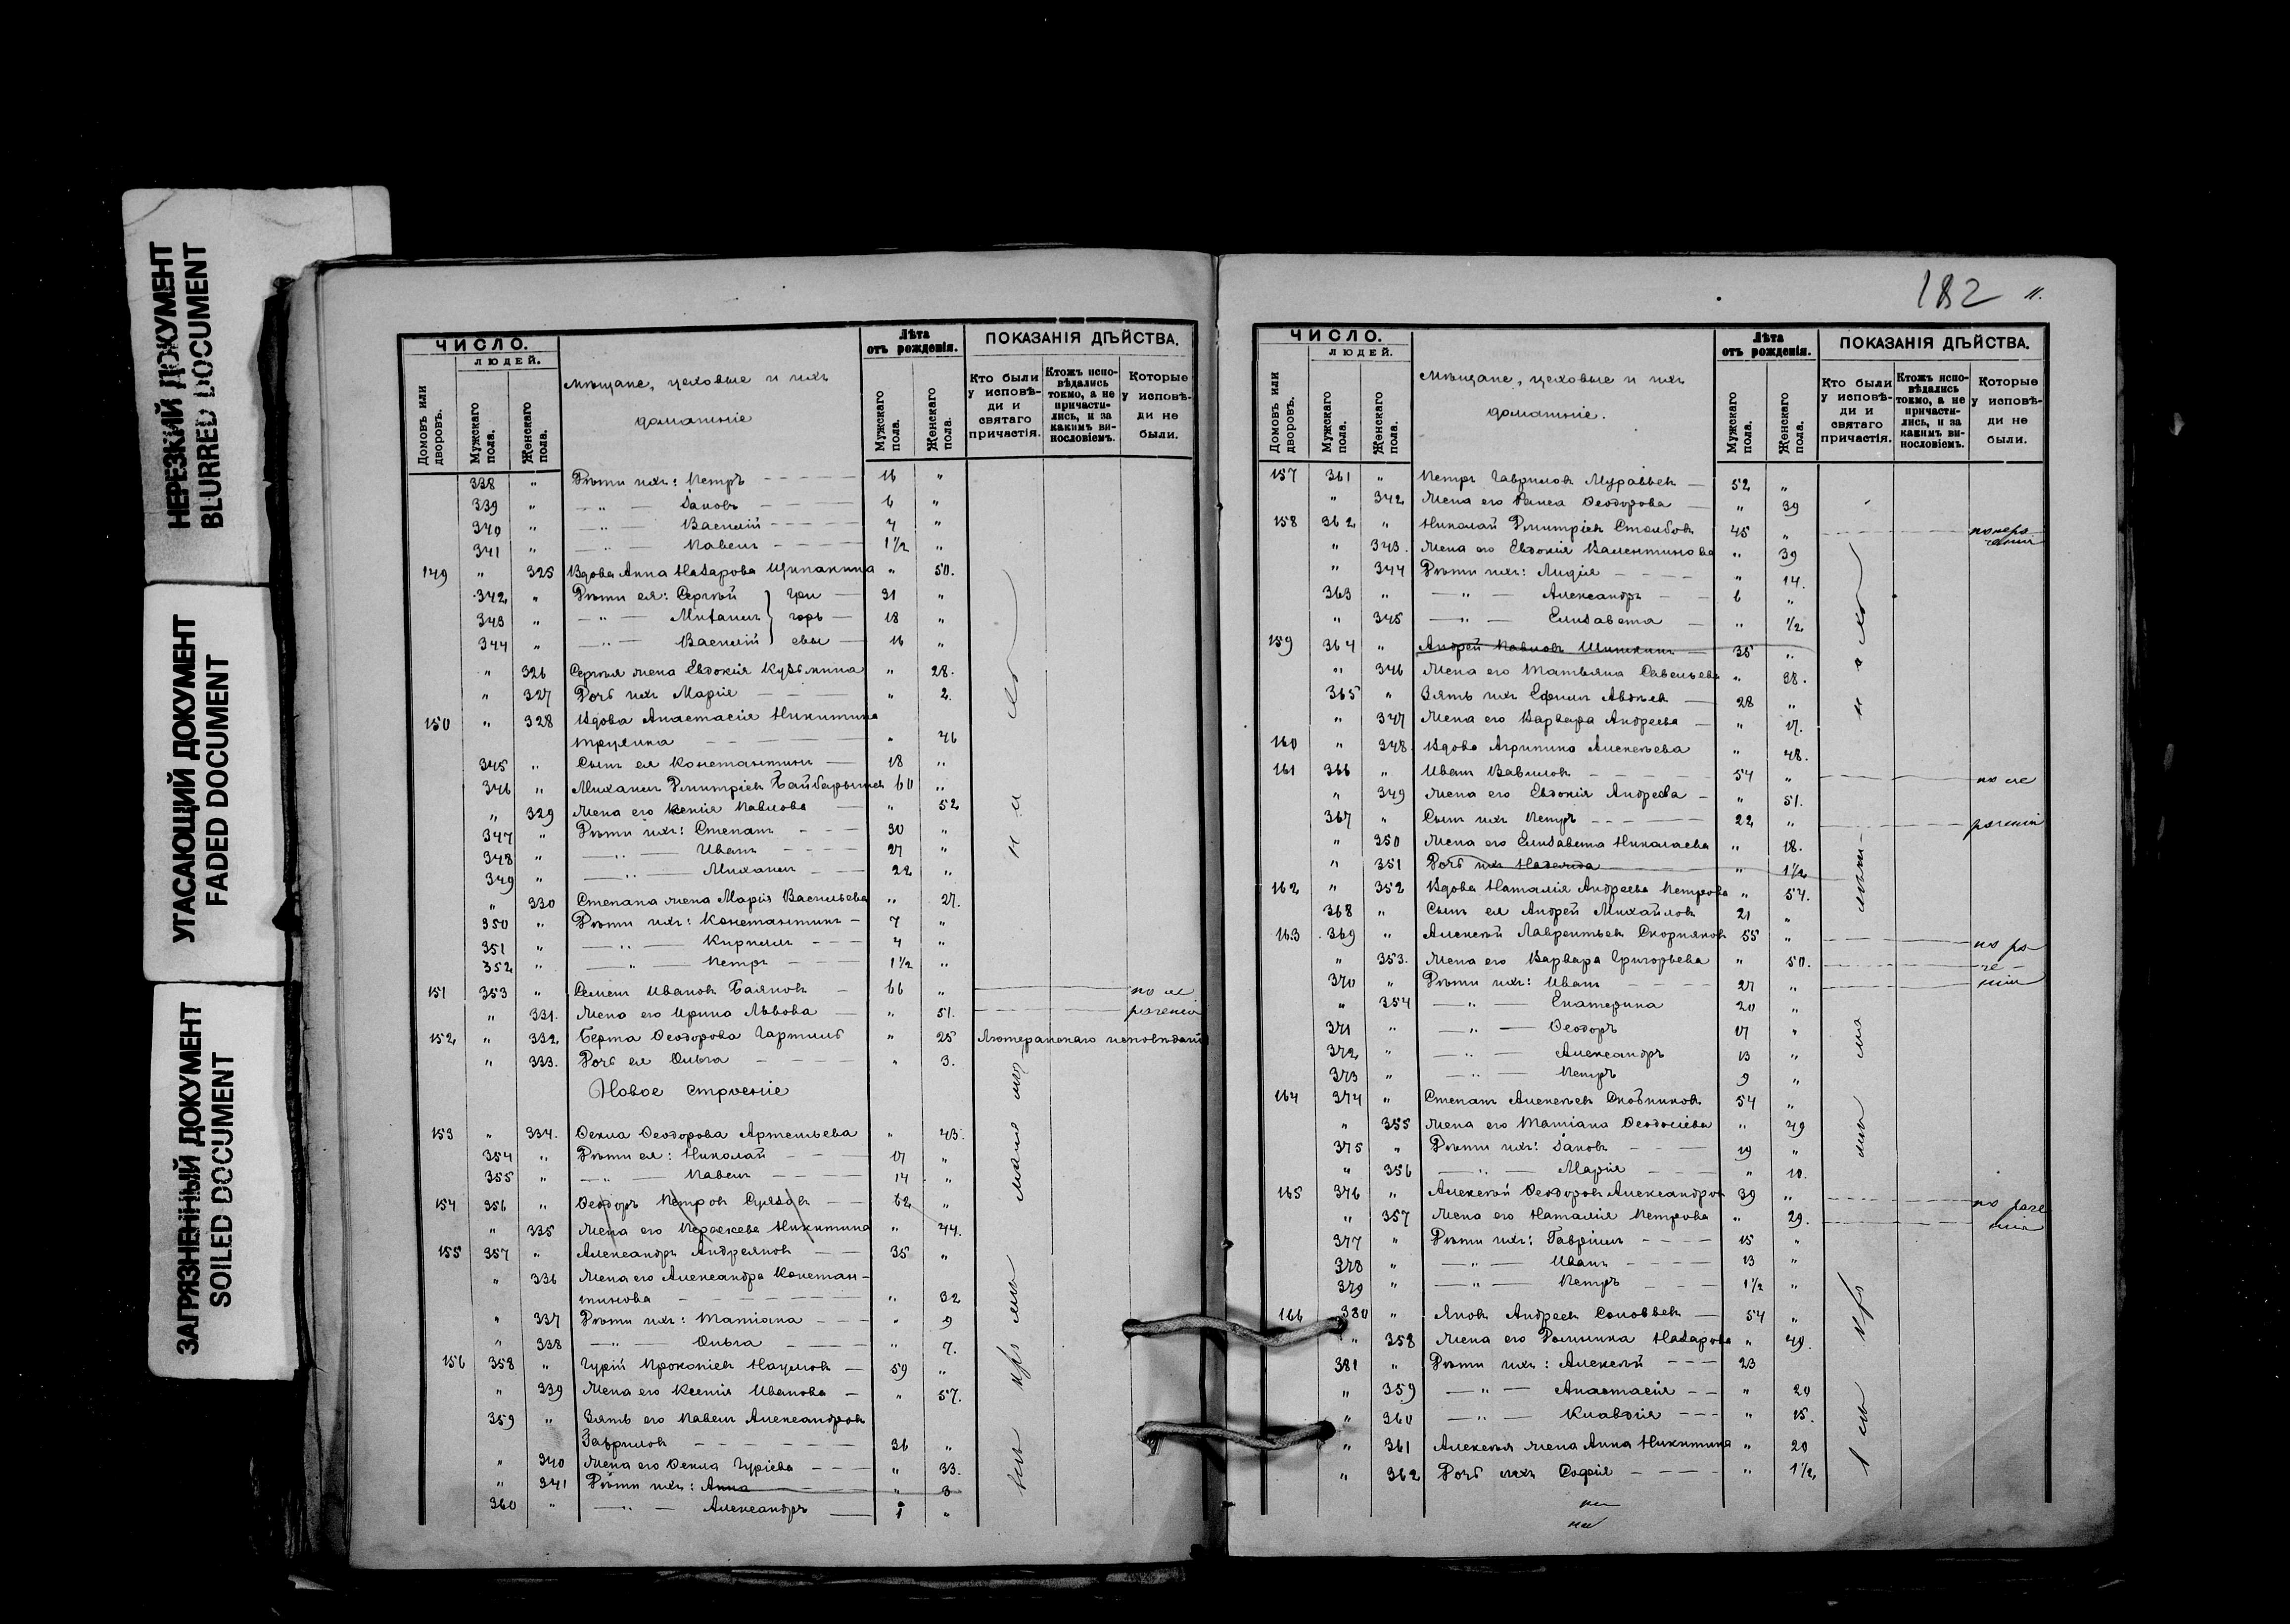 НЕРЕЗКИЙ ДОКУМЕНТ
BLURRED DOCUMENT
УГАСАЮЩИЙ ДОКУМЕНТ
FADED DOCUMENT
ЗАГРЯЗНЕННЫЙ ДОКУМЕНТ
SOILED DOCUMENT
ЧИСЛО.
ЛЮДЕЙ.
Домовъ или дворовъ.
Мужскаго пола.
Женскаго пола.
Мѣщане, цеховые и ихъ
домашніе
Лѣта отъ рожденія.
Мужскаго пола.
Женскаго пола.
ПОКАЗАНІЯ ДѢЙСТВА.
Кто были у исповѣди и святаго причастія.
Ктожъ исповѣдались токмо, а не причастились, и за какимъ винословіемъ.
Которые у исповѣди не были.
338 " Дѣти ихъ: Петръ 16 "
339 " — " — Іаковъ 6 "
340 " — " — Василій 4 "
341 " — " — Павелъ 1½ "
149 " 325 Вдова Анна Назарова Щипакина " 50.
342 " Дѣти ея: Сергѣй } Гри 31 "
343 " — " — Михаилъ } горь 18 "
344 " — " — Василій } евы 16 "
" 326 Сергѣя жена Евдокія Кузьмина " 28.
" 327 Дочь ихъ Марія " 2.
150 " 328 Вдова Анастасія Никитина
" 46
345 " Сынъ ея Константинъ 18 "
346 " Михаилъ Димитріевъ 60 "
" 329 Жена его Ксенія Павлова " 52
347 " Дѣти ихъ: Степанъ 30 "
348 " — " — Иванъ 27 "
349 " — " — Михаилъ 22 "
" 330 Степана жена Марія Васильева " 27.
350 " Дѣти ихъ: Константинъ 7 "
351 " — " — Кириллъ 4 "
352 " — " — Петръ 1½ "
151 353 " Семенъ Ивановъ Баяновъ 66 " по не
" 331. Жена его Ирина Львова " 51. раченію
152 " 332 Берта Ѳеодорова Гартиль " 25 Лютеранскаго исповѣданія
" 333. Дочь ея Ольга " 3.
Новое строеніе
153 " 334. Ѳекла Ѳеодорова Артемьева " 43.
354 " Дѣти ея: Николай 17 "
355 " — " — Павелъ 14 "
154 356 " Ѳеодоръ Петровъ 62 "
" 335 Жена его Параскева Никитина " 44.
155 357 " Александръ Андреяновъ 35 "
" 336 Жена его Александра Констан-
тинова " 32
" 337 Дѣти ихъ: Татіана " 9
" 338 — " — Ольга " 7.
156 358 " Гурій Прокопіевъ Наумовъ 59 "
" 339 Жена его Ксенія Иванова " 57.
359 " Зять его Павелъ Александровъ
Гавриловъ 36 "
" 340 Жена его Ѳекла Гуріева " 33.
" 341 Дѣти ихъ: Анна " 3
360 " — " — Александръ 1 "
182
11.
ЧИСЛО.
ЛЮДЕЙ.
Домовъ или дворовъ.
Мужскаго пола.
Женскаго пола.
Мѣщане, цеховые и ихъ
домашніе.
Лѣта отъ рожденія.
Мужскаго пола.
Женскаго пола.
ПОКАЗАНІЯ ДѢЙСТВА.
Кто были у исповѣди и святаго причастія.
Ктожъ исповѣдались токмо, а не причастились, и за какимъ винословіемъ.
Которые у исповѣди не были.
157 361 " Петръ Гавриловъ Муравьевъ 52 "
" 342 Жена его Раиса Ѳеодорова " 39
158 362 " Николай Димитріевъ Столбовъ 45 " по нера-
" 343. Жена его Евдокія Валентинова " 39 ченію
" 344 Дѣти ихъ: Лидія " 14.
363 " — " — Александръ 6 "
" 345 — " — Елизавета " ½
159 364 " Андрей Павловъ Шишкинъ 35 "
" 346 Жена его Татьяна Савельева " 38.
365 " Зять ихъ Ефимъ Авдѣевъ 28 "
" 347 Жена его Варвара Андреева " 17.
160 " 348. Вдова Агрипина Алексѣева " 48.
161 366 " Иванъ Вавиловъ 54 " по не
" 349 Жена его Евдокія Андреева " 51.
367 " Сынъ ихъ Петръ 22 " раченію
" 350 Жена его Елизавета Николаева " 18.
" 351 Дочь ихъ Надежда " 1½
162 " 352 Вдова Наталія Андреева Петрова " 54.
368 " Сынъ ея Андрей Михайловъ 21 "
163 369 " Алексѣй Лаврентьевъ Скорняковъ 55 "
" 353. Жена его Варвара Григорьева " 50.
370 " Дѣти ихъ: Иванъ 27 "
" 354 — " — Екатерина 20 "
371 " — " — Ѳеодоръ 17 "
372 " — " — Александръ 13 "
373 " — " — Петръ 9 "
164 374 " Степанъ Алексѣевъ Скобниковъ 54 "
" 355 Жена его Татіана Ѳеодосіева " 49
375 " Дѣти ихъ: Іаковъ 19 "
" 356 — " — Марія " 10.
165 376 " Алексѣй Ѳеодоровъ Александровъ 39 "
" 357 Жена его Наталія Петрова " 29.
377 " Дѣти ихъ: Гавріилъ 15 "
378 " — " — Иванъ 13 "
379 " — " — Петръ 1½ "
166 380 " Яковъ Андреевъ Соловьевъ 54 "
" 358 Жена его Домника Назарова " 49.
381 " Дѣти ихъ: Алексѣй 23
" 359 — " — Анастасія " 20
" 360 — " — Клавдія " 15.
" 361 Алексѣя жена Анна Никитина " 20
" 362 Дочь ихъ Софія " 1½